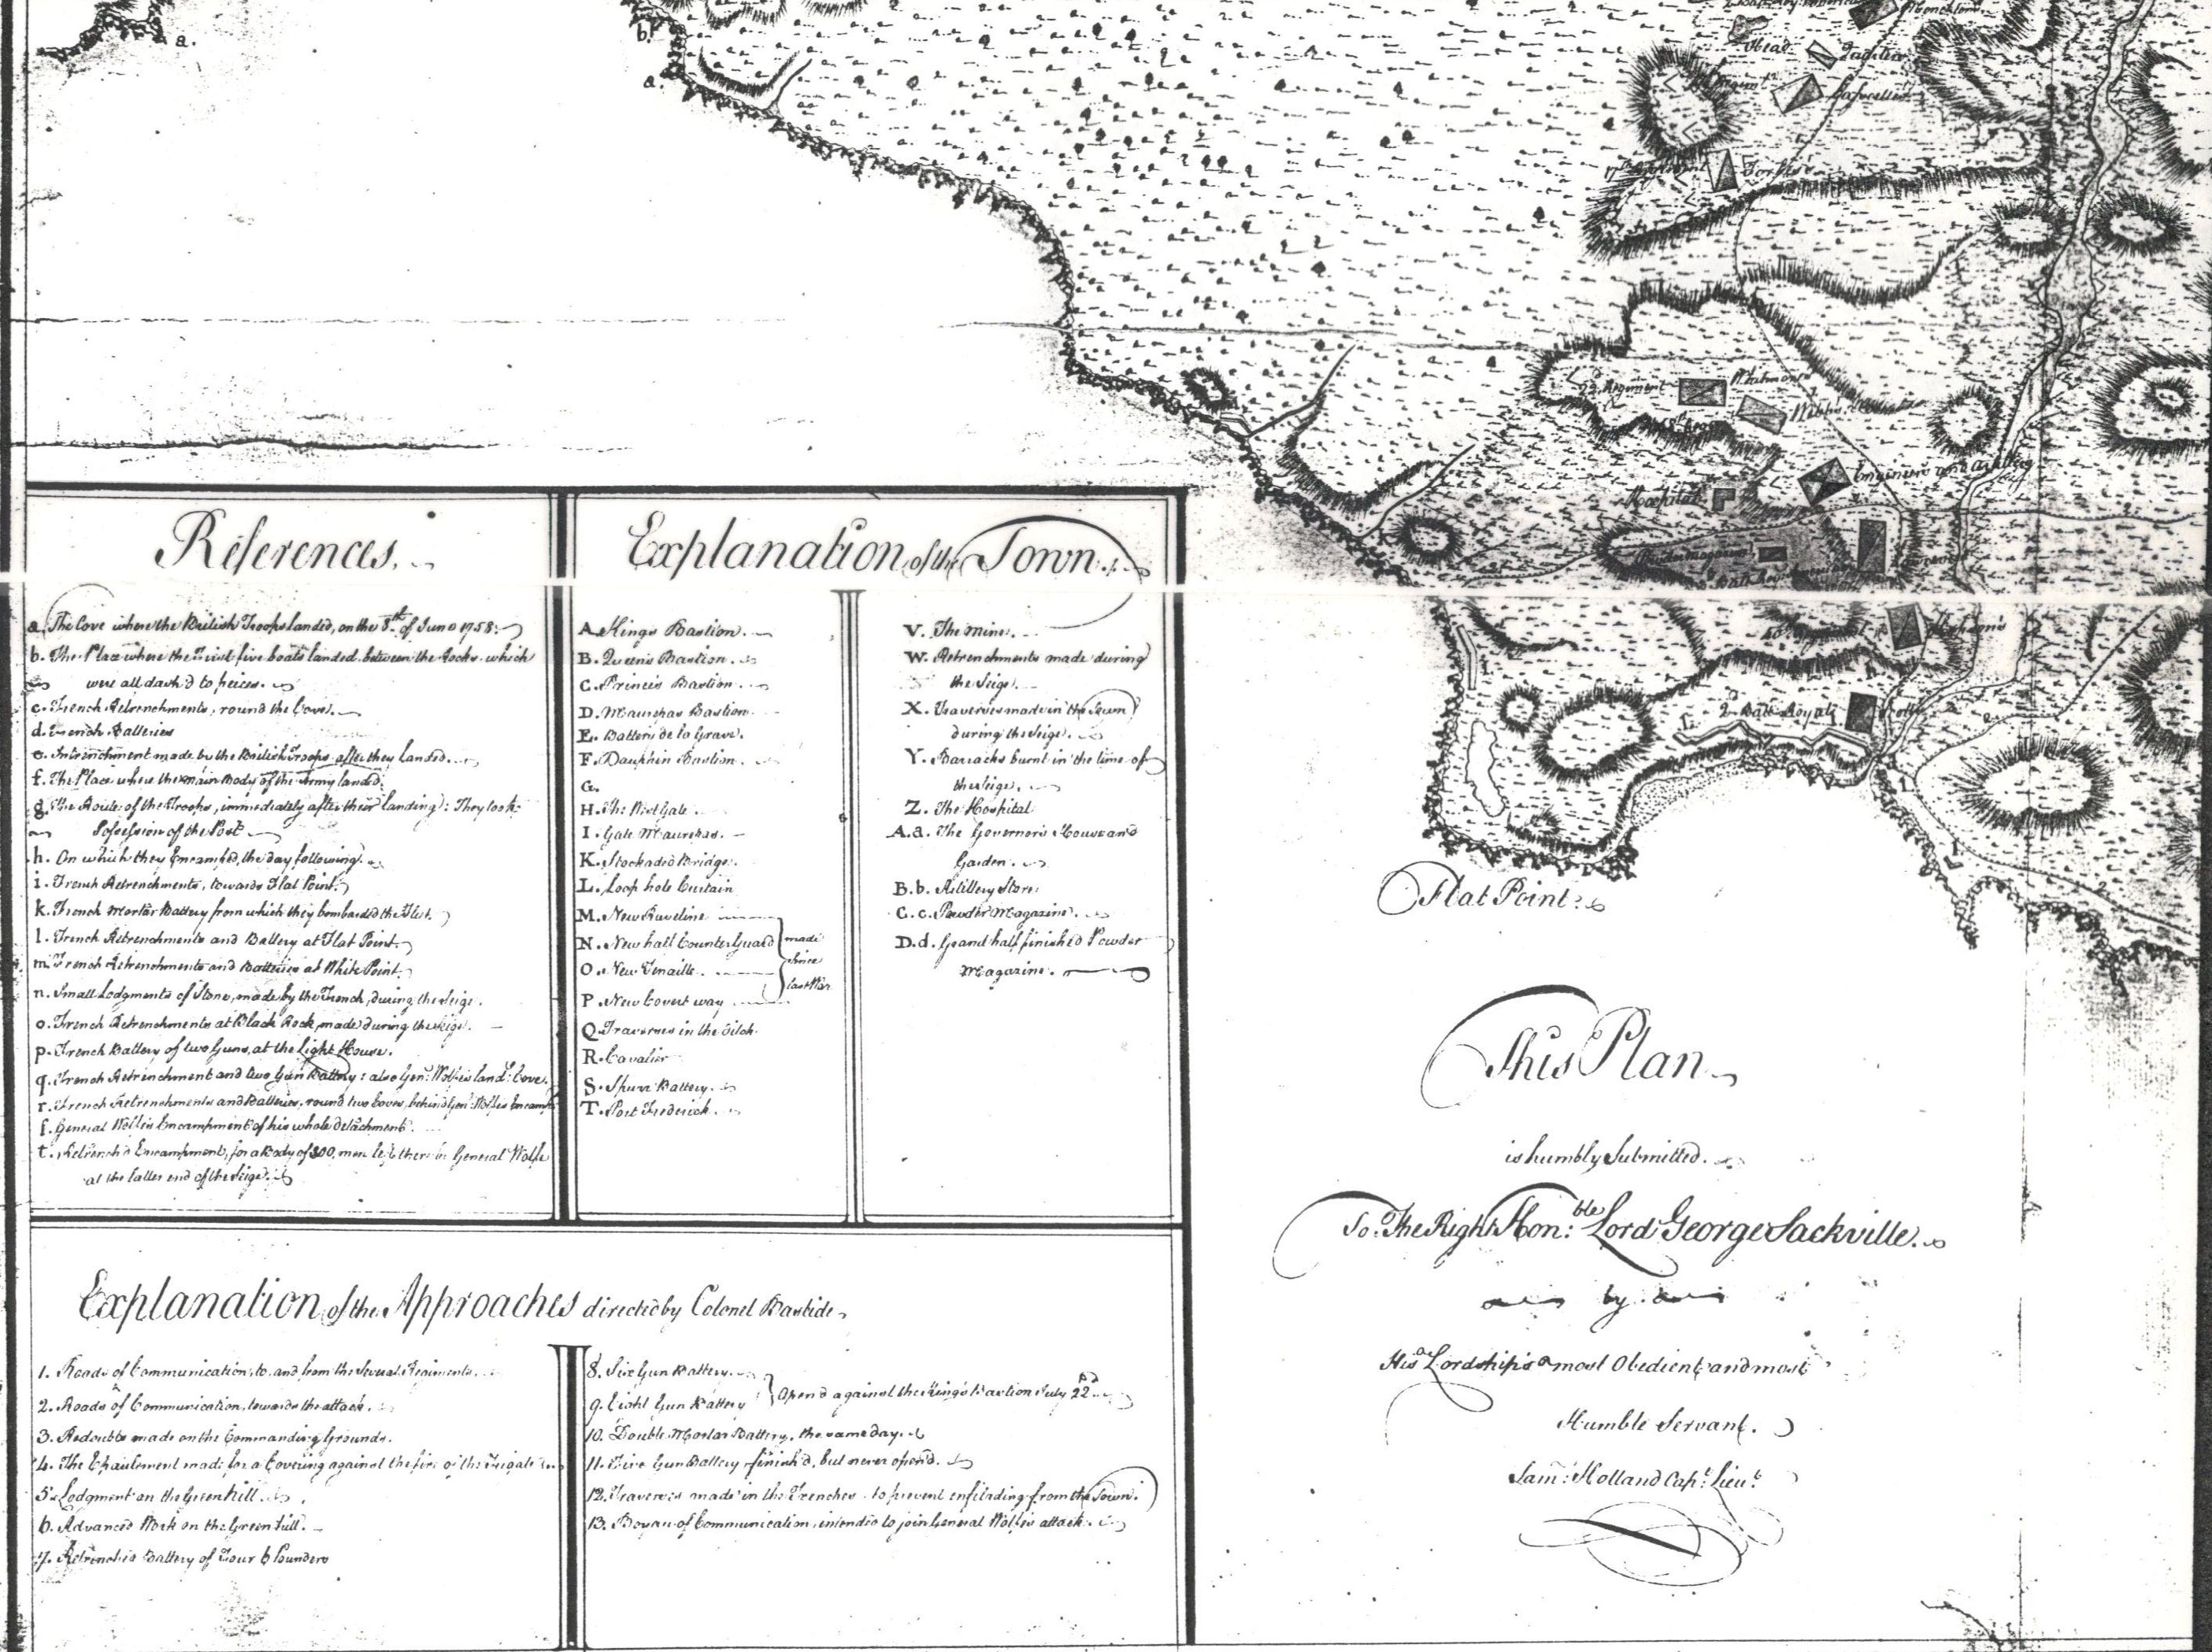 a.
b.
a.
Monckton
Mead
17th Regiment Forbes's
22d Regiment Whitmore's
Webb's
Hospital
Engineers and Artillery
Powder Magazine
Lawrence's
Hopson's
2d Batt Royals
L
Flat Point.
References.
a. The Cove where the British Troops landed, on the 8th of June 1758.
b. The Place where the First five boats landed between the Rocks which
were all dash'd to peices.
c. French Retrenchments, round the Cove.
d. French Batteries
e. Intrenchment made by the British Troops after they landed.
f. The Place where the main Body of the Army landed.
g. The Route of the Troops, immediately after their landing: They took
Possession of the Post
h. On which they Encamped, the day following.
i. French Retrenchments, towards Flat Point.
k. French Mortar Battery from which they bombarded the Fleet.
l. French Retrenchments and Battery at Flat Point.
m. French Retrenchments and Batteries at White Point.
n. Small Lodgments of Stone, made by the French, during the Seige.
o. French Retrenchments at Black Rock, made during the seige.
p. French Battery of two Guns, at the Light House.
q. French Retrenchment and two Gun Battery: also Genl. Wolfe's landg. Cove.
r. French Retrenchments and Batteries, round two Coves, behind Genl. Wolfes Encampt
s. General Wolfe's Encampment of his whole detachment.
t. Retrench'd Encampment, for a Body of 300, men left there by General Wolfe
at the latter end of the Seige.
Explanation of the Town.
A. Kings Bastion.
B. Queen's Bastion.
C. Princes Bastion.
D. Maurepas Bastion.
E. Batterie de la Grave.
F. Dauphin Bastion.
G.
H. The West Gate.
I. Gate Maurepas.
K. Stockaded Bridge.
L. Loop hole Curtain
M. New Raveline
N. New half Counter Guard
O. New Tenaille.
P. New Covert way
made
since
last War
Q. Traverses in the ditch.
R. Cavalier
S. Spurr Battery.
T. Port Frederick.
V. The Mine.
W. Retrenchments made during
the Seige.
X. Traverses made in the Town
during the Seige.
Y. Barracks burnt in the time of
the seige.
Z. The Hospital
A.a. The Governor's House and
Garden.
B.b. Artillery Store.
C.c. Powder Magazine.
D.d. Grand half finished Powder
Magazine.
Explanation of the Approaches directed by Colonel Bastide
1. Roads of Communication, to and from the Several Regiments.
2. Roads of Communication, towards the attack.
3. Redoubts made on the Commanding Grounds.
4. The Epaulement made for a Covering against the fire of the Frigate
5. Lodgment on the Green hill.
6. Advanced Work on the Green hill.
7. Retrenched Battery of Four 6 Pounders
8. Six Gun Battery.
9. Eight Gun Battery
Open'd against the King's Bastion July 22d
10. Double Mortar Battery, the same day.
11. Five Gun Battery finish'd, but never open'd.
12. Traverses made in the Trenches to prevent enfilading from the Town.
13. Boyau of Communication, intended to join General Wolfe's attack.
This Plan
is humbly Submitted.
To The Right Honble: Lord George Sackville.
by
His Lordship's most Obedient and most
Humble Servant.
Saml: Holland Capt: Lieut